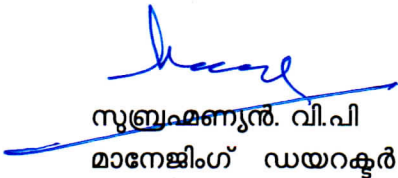 സുബ്രഹ്മണ്യൻ. വി.പി
മാനേജിംഗ് ഡയറക്ടർ